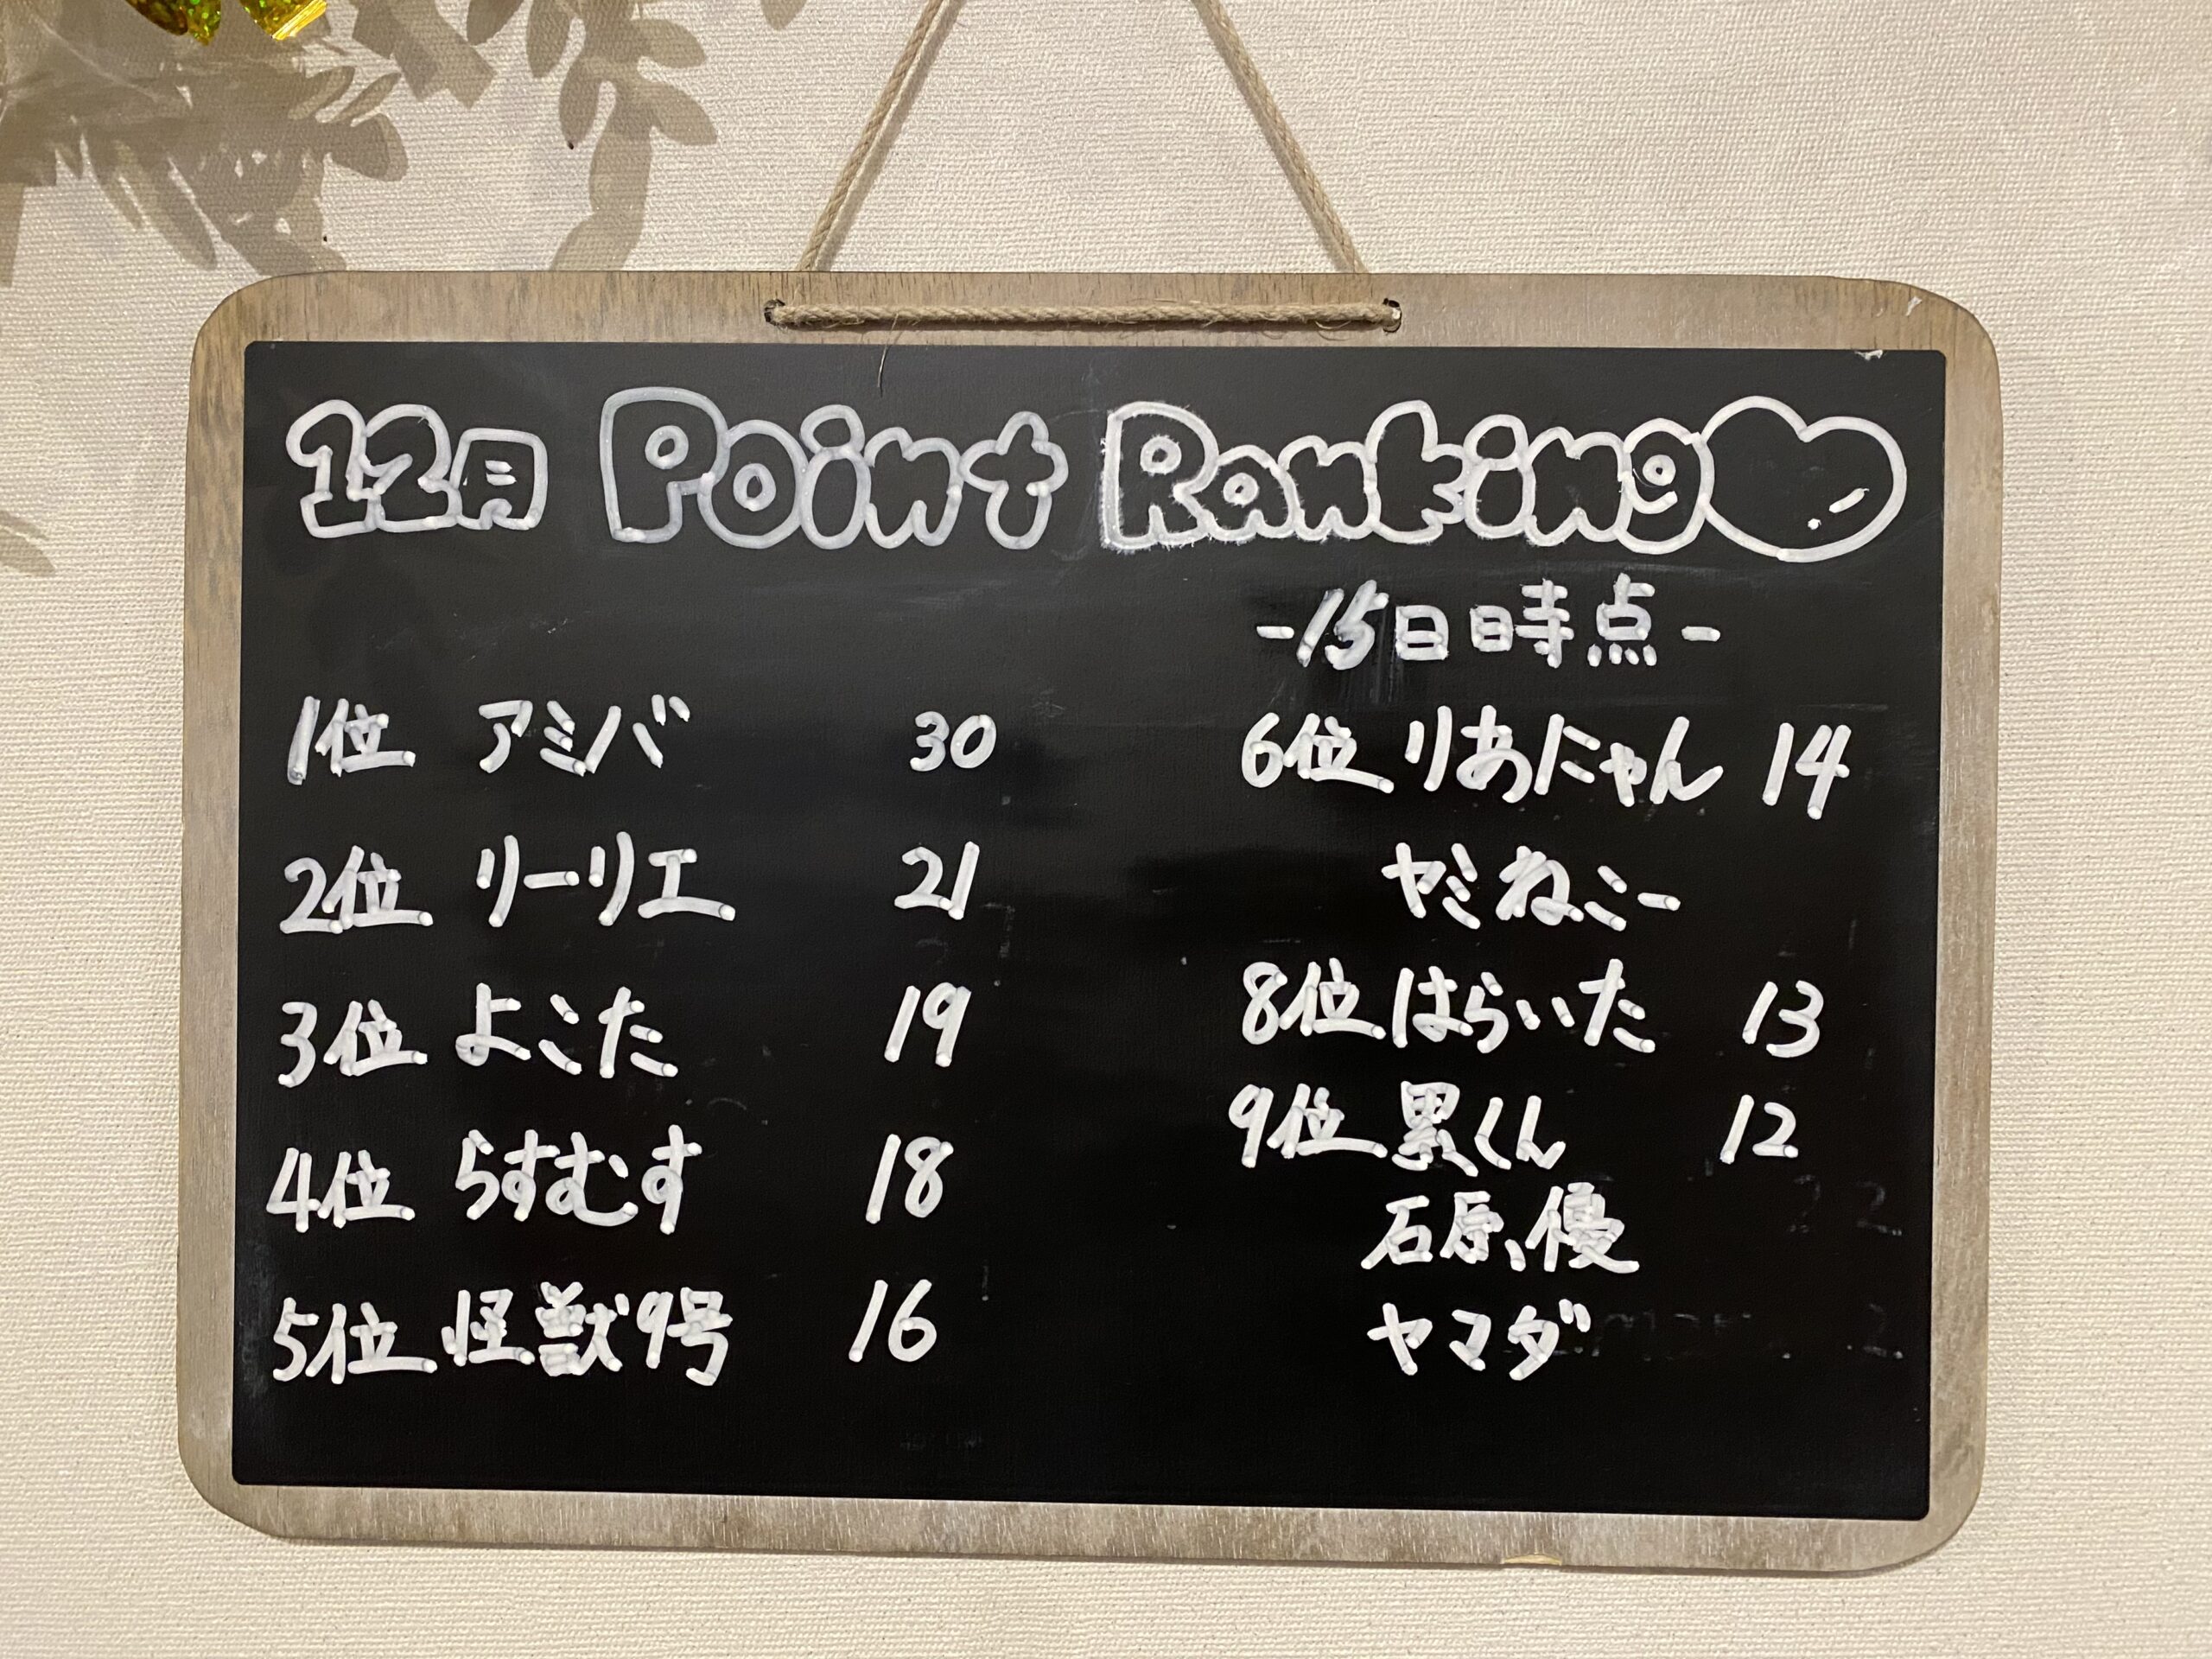 12月 Point Ranking♡
-15日時点-
1位 アミバ 30
2位 リーリエ 21
3位 よこた 19
4位 らすむす 18
5位 怪獣9号 16
6位 りあにゃん 14
ヤミねこー
8位 はらいた 13
9位 累くん 12
石原、優
ヤマダ